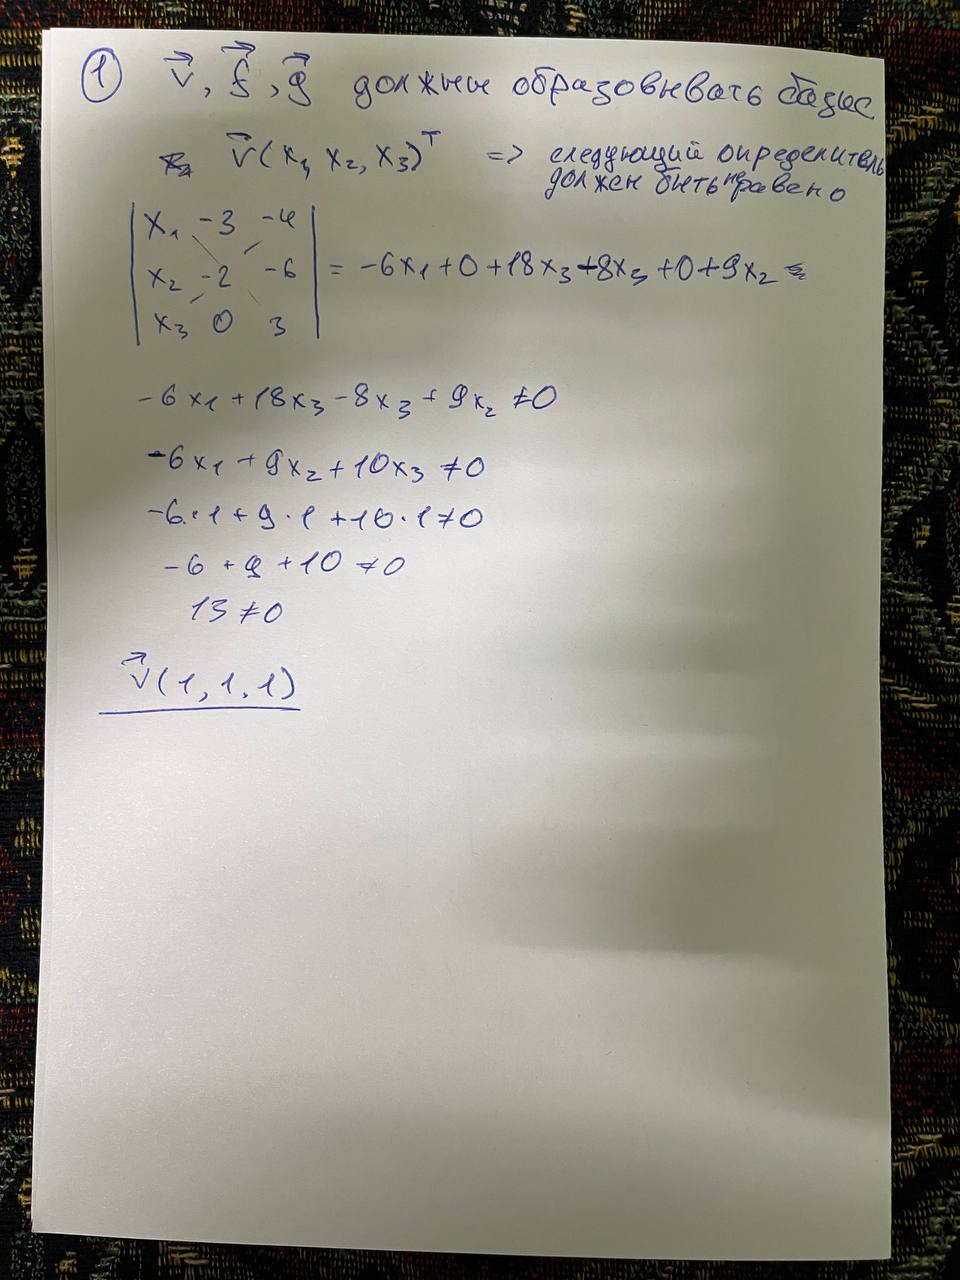 ① v⃗, f⃗, g⃗ должны образовывать базис
v⃗(x₁, x₂, x₃)ᵀ => следующий определитель
должен быть не равен 0
| x₁ -3 -4 |
| x₂ -2 -6 | = -6x₁ + 0 + 18x₃ - 8x₃ + 0 + 9x₂
| x₃ 0 3 |
-6x₁ + 18x₃ - 8x₃ + 9x₂ ≠ 0
-6x₁ + 9x₂ + 10x₃ ≠ 0
-6·1 + 9·1 + 10·1 ≠ 0
-6 + 9 + 10 ≠ 0
13 ≠ 0
v⃗(1, 1, 1)